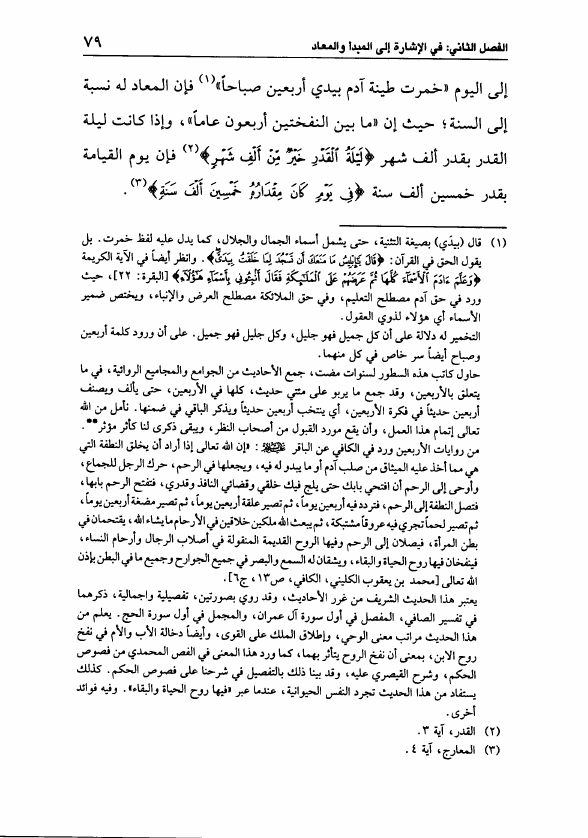 الفصل الثاني: في الإشارة إلى المبدأ والمعاد ٧٩
إلى اليوم «خمرت طينة آدم بيدي أربعين صباحاً»(١) فإن المعاد له نسبة
إلى السنة؛ حيث إن «ما بين النفختين أربعون عاماً»، وإذا كانت ليلة
القدر بقدر ألف شهر ﴿لَيْلَةُ ٱلْقَدْرِ خَيْرٌ مِّنْ أَلْفِ شَهْرٍ﴾(٢) فإن يوم القيامة
بقدر خمسين ألف سنة ﴿فِى يَوْمٍ كَانَ مِقْدَارُهُۥ خَمْسِينَ أَلْفَ سَنَةٍ﴾(٣).
(١) قال (بيدَي) بصيغة التثنية، حتى يشمل أسماء الجمال والجلال، كما يدل عليه لفظ خمرت. بل
يقول الحق في القرآن: ﴿قَالَ يَٰٓإِبْلِيسُ مَا مَنَعَكَ أَن تَسْجُدَ لِمَا خَلَقْتُ بِيَدَىَّ﴾. وانظر أيضاً في الآية الكريمة
﴿وَعَلَّمَ ءَادَمَ ٱلْأَسْمَآءَ كُلَّهَا ثُمَّ عَرَضَهُمْ عَلَى ٱلْمَلَٰٓئِكَةِ فَقَالَ أَنۢبِـُٔونِى بِأَسْمَآءِ هَٰٓؤُلَآءِ﴾ [البقرة: ٢٢]، حيث
ورد في حق آدم مصطلح التعليم، وفي حق الملائكة مصطلح العرض والإنباء، ويختص ضمير
الأسماء أي هؤلاء لذوي العقول.
التخمير له دلالة على أن كل جميل فهو جليل، وكل جليل فهو جميل. على أن ورود كلمة أربعين
وصباح أيضاً سر خاص في كل منهما.
حاول كاتب هذه السطور لسنوات مضت، جمع الأحاديث من الجوامع والمجاميع الروائية، في ما
يتعلق بالأربعين، وقد جمع ما يربو على مئتي حديث، كلها في الأربعين، حتى يألف ويصنف
أربعين حديثاً في فكرة الأربعين، أي ينتخب أربعين حديثاً ويذكر الباقي في ضمنها. نأمل من الله
تعالى إتمام هذا العمل، وأن يقع مورد القبول من أصحاب النظر، ويبقى ذكرى لنا كأثر مؤثر**.
من روايات الأربعين ورد في الكافي عن الباقر : «إن الله تعالى إذا أراد أن يخلق النطفة التي
هي مما أخذ عليه الميثاق من صلب آدم أو ما يبدو له فيه، ويجعلها في الرحم، حرك الرجل للجماع،
وأوحى إلى الرحم أن افتحي بابك حتى يلج فيك خلقي وقضائي النافذ وقدري، فتفتح الرحم بابها،
فتصل النطفة إلى الرحم، فتردد فيه أربعين يوماً، ثم تصير علقة أربعين يوماً، ثم تصير مضغة أربعين يوماً،
ثم تصير لحماً تجري فيه عروقاً مشتبكة، ثم يبعث الله ملكين خلاقين في الأرحام ما يشاء الله، يقتحمان في
بطن المرأة، فيصلان إلى الرحم وفيها الروح القديمة المنقولة في أصلاب الرجال وأرحام النساء،
فينفخان فيها روح الحياة والبقاء، ويشقان له السمع والبصر في جميع الجوارح وجميع ما في البطن بإذن
الله تعالى [محمد بن يعقوب الكليني، الكافي، ص١٣، ج٦].
يعتبر هذا الحديث الشريف من غرر الأحاديث، وقد روي بصورتين، تفصيلية واجمالية، ذكرهما
في تفسير الصافي، المفصل في أول سورة آل عمران، والمجمل في أول سورة الحج. يعلم من
هذا الحديث مراتب معنى الوحي، وإطلاق الملك على القوى، وأيضاً دخالة الأب والأم في نفخ
روح الابن، بمعنى أن نفخ الروح يتأثر بهما، كما ورد هذا المعنى في الفص المحمدي من فصوص
الحكم، وشرح القيصري عليه، وقد بينا ذلك بالتفصيل في شرحنا على فصوص الحكم. كذلك
يستفاد من هذا الحديث تجرد النفس الحيوانية، عندما عبر «فيها روح الحياة والبقاء». وفيه فوائد
أخرى.
(٢) القدر، آية ٣.
(٣) المعارج، آية ٤.